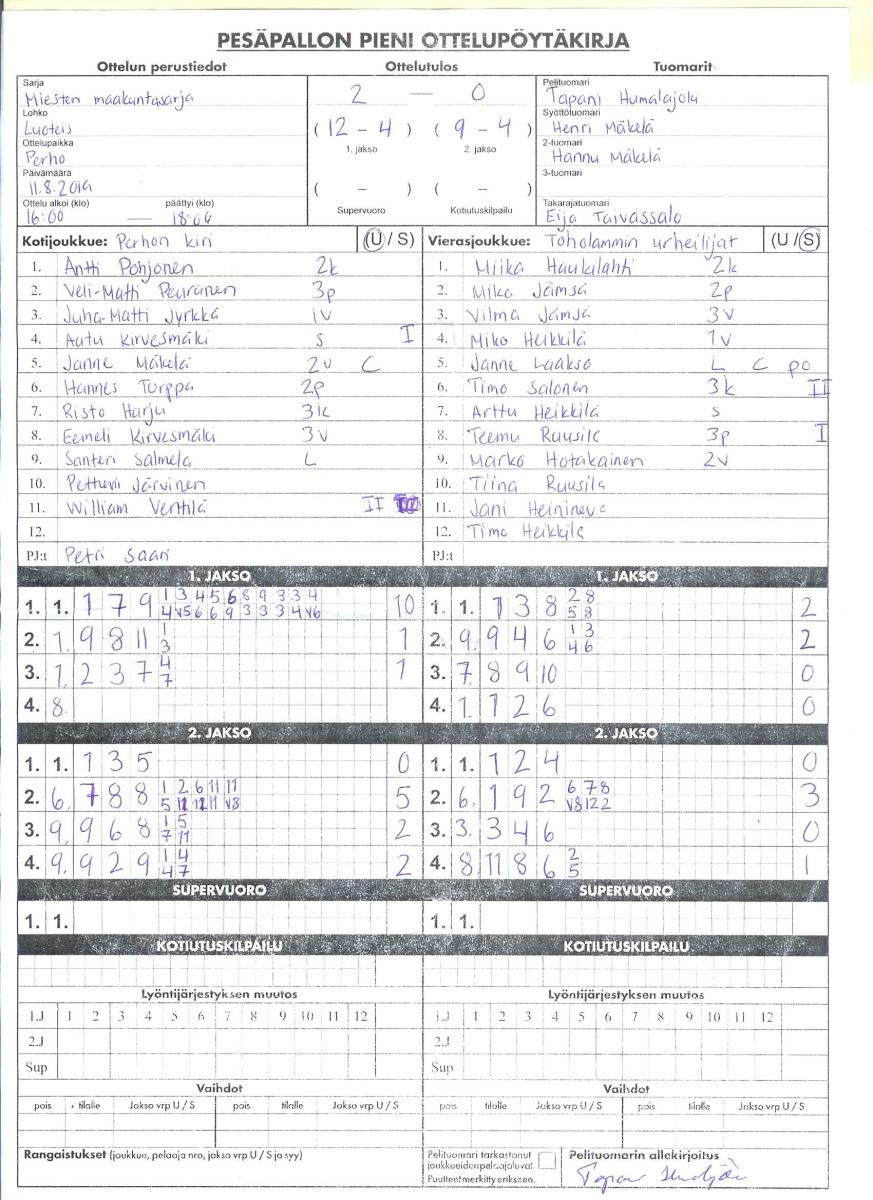 PESÄPALLON PIENI OTTELUPÖYTÄKIRJA
Ottelun perustiedot Ottelutulos Tuomarit
Sarja
Miesten maakuntasarja
Lohko
Luoteis
Ottelupaikka
Perho
Päivämäärä
11.8.2019
Ottelu alkoi (klo) päättyi (klo)
16:00 — 18:06
2 — 0
( 12 - 4 ) ( 9 - 4 )
1. jakso 2. jakso
( - ) ( - )
Supervuoro Kotiutuskilpailu
Pelituomari
Tapani Humalajoki
Syöttötuomari
Henri Mäkelä
2-tuomari
Hannu Mäkelä
3-tuomari
Takarajatuomari
Eija Taivassalo
Kotijoukkue: Perhon kiri (U / S)
1. Antti Pohjonen 2k
2. Veli-Matti Peuranen 3p
3. Juha-Matti Jyrkkä 1v
4. Aatu Kirvesmäki s I
5. Janne Mäkelä 2v C
6. Hannes Torppa 2p
7. Risto Harju 3k
8. Eemeli Kirvesmäki 3v
9. Santeri Salmela L
10. Petteri Järvinen
11. William Ventilä II
12.
PJ:t Petri Saari
Vierasjoukkue: Toholammin urheilijat (U / S)
1. Miika Haukilahti 2k
2. Mika Jämsä 2p
3. Vilma Jämsä 3v
4. Miko Heikkilä 1v
5. Janne Laakso L C po
6. Timo Salonen 3k II
7. Arttu Heikkilä s
8. Teemu Ruusila 3p I
9. Marko Hotakainen 2v
10. Tiina Ruusila
11. Jani
12. Timo Heikkilä
PJ:t
1. JAKSO
1. 1. 1 7 9 1 3 4 5 6 8 9 3 3 4 10
4 v5 6 6 9 3 3 3 4 v6
2. 1. 9 8 11 1 1
3
3. 1. 2 3 7 4 1
7
4. 8.
1. JAKSO
1. 1. 1 3 8 2 8 2
5 8
2. 9. 9 4 6 1 3 2
4 6
3. 7. 8 9 10 0
4. 1. 1 2 6 0
2. JAKSO
1. 1. 1 3 5 0
2. 6. 7 8 8 1 2 6 11 11 5
5 11 12 11 v8
3. 9. 9 6 8 1 5 2
7 11
4. 9. 9 2 9 1 4 2
4 7
2. JAKSO
1. 1. 1 2 4 0
2. 6. 1 9 2 6 7 8 3
v8 12 2
3. 3. 3 4 6 0
4. 8. 11 8 6 2 1
5
SUPERVUORO
1. 1.
SUPERVUORO
1. 1.
KOTIUTUSKILPAILU
KOTIUTUSKILPAILU
Lyöntijärjestyksen muutos
1.J 1 2 3 4 5 6 7 8 9 10 11 12
2.J
Sup
Lyöntijärjestyksen muutos
1.J 1 2 3 4 5 6 7 8 9 10 11 12
2.J
Sup
Vaihdot
pois tilalle Jakso vrp U / S pois tilalle Jakso vrp U / S
Vaihdot
pois tilalle Jakso vrp U / S pois tilalle Jakso vrp U / S
Rangaistukset (joukkue, pelaaja nro, jakso vrp U / S ja syy)
Pelituomari tarkastanut
joukkueiden pelaajaluvat
Puutteet merkitty erikseen.
Pelituomarin allekirjoitus